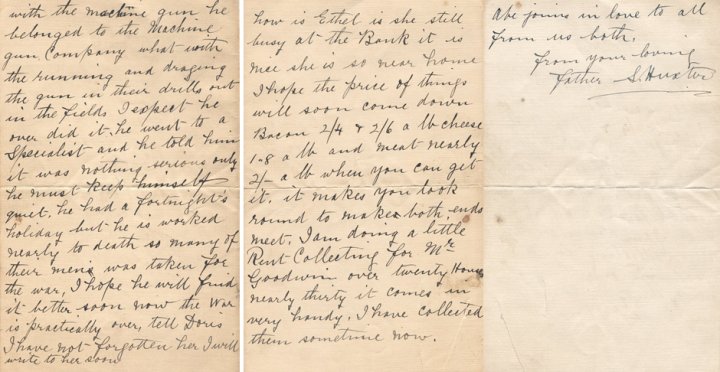 with the machine gun he
belonged to the Machine
gun Company what with
the running and draging
the gun in their drills out
in the fields I expect he
over did it. he went to a
Specialist and he told him
it was nothing serious only
he must keep himself
quiet. he had a fortnight's
holiday but he is worked
nearly to death so many of
their mens was taken for
the war, I hope he will find
it better soon now the War
is practically over, tell Doris
I have not forgotten her I will
write to her soon
how is Ethel is she still
busy at the Bank it is
nice she is so near home
I hope the price of things
will soon come down
Bacon 2/4 & 2/6 a lb cheese
1-8 a lb and meat nearly
2/- a lb when you can get
it. it makes you look
round to make both ends
meet. I am doing a little
Rent Collecting for Mr
Goodwin over twenty Houses
nearly thirty it comes in
very handy. I have collected
them sometime now.
Abe joins in love to all
from us both.
From your loving
Father S. Huxter